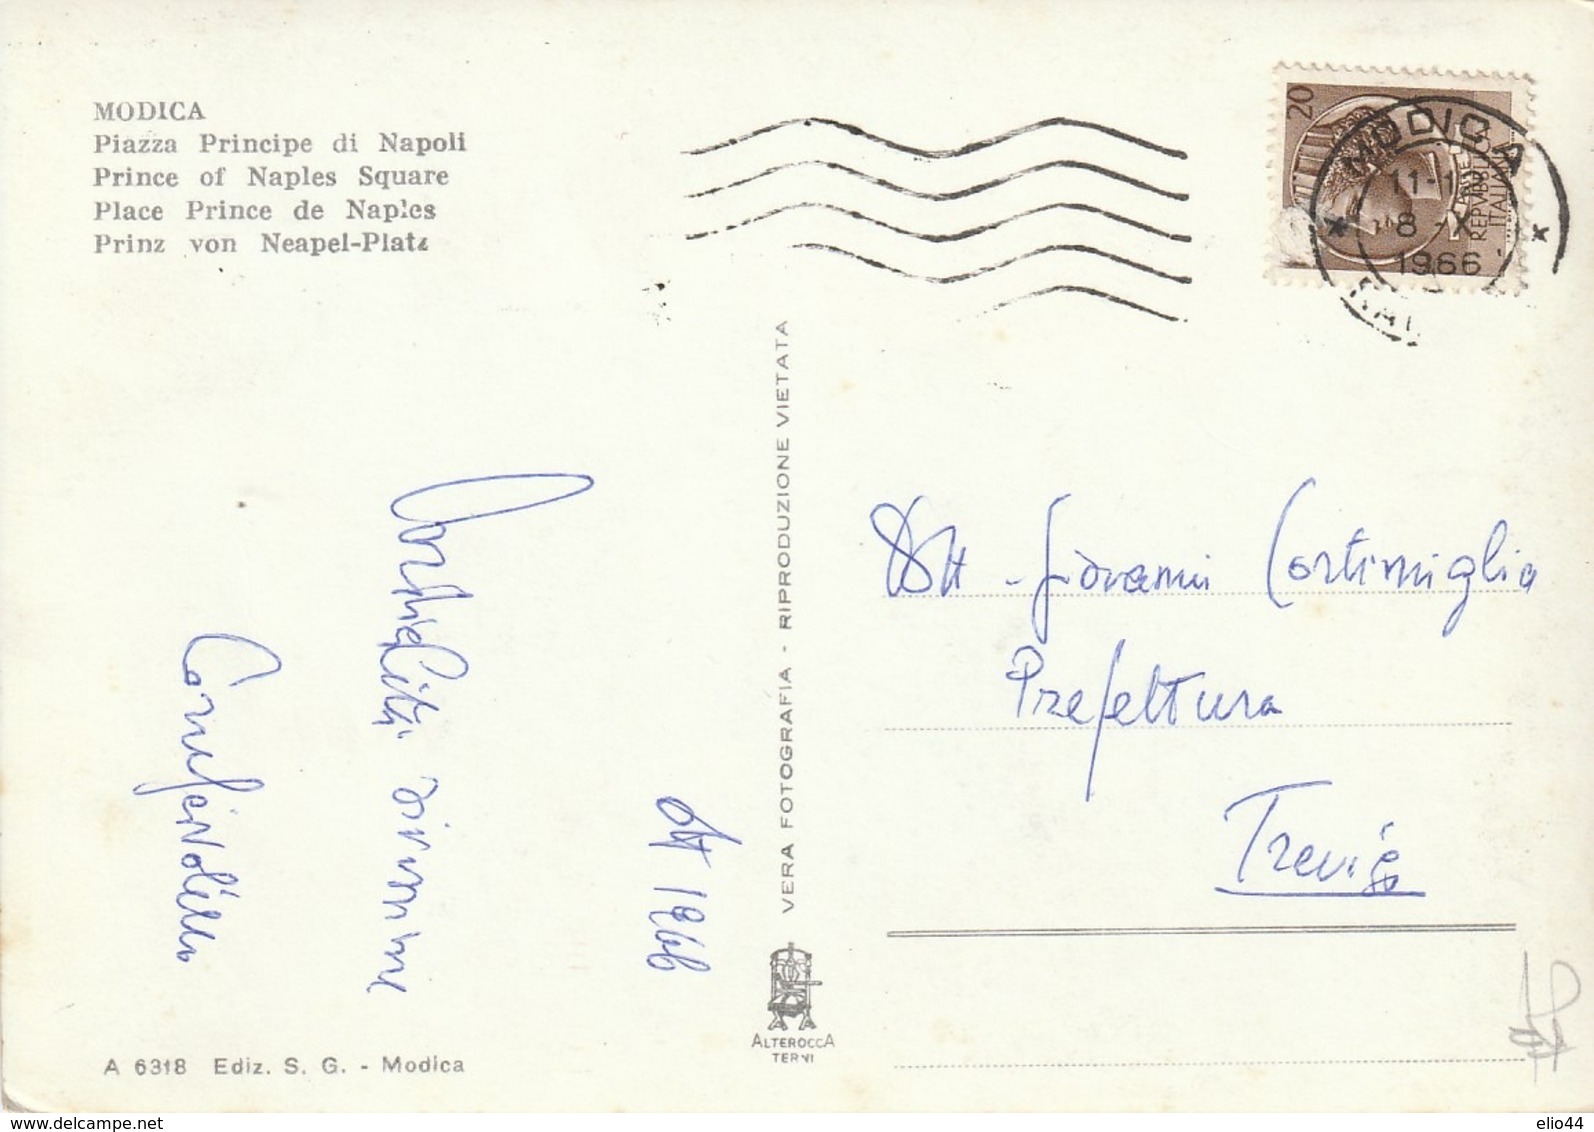 MODICA
Piazza Principe di Napoli
Prince of Naples Square
Place Prince de Naples
Prinz von Neapel-Platz
20
POSTE
REPVBBLICA
ITALIANA
MODICA
8 -X
1966
VERA FOTOGRAFIA - RIPRODUZIONE VIETATA
Ott 1966
Cordialità
Dott - Giovanni Cortimiglia
Prefettura
Treviso
ALTEROCCA
TERNI
A 6318 Ediz. S. G. - Modica
www.delcampe.net
elio44